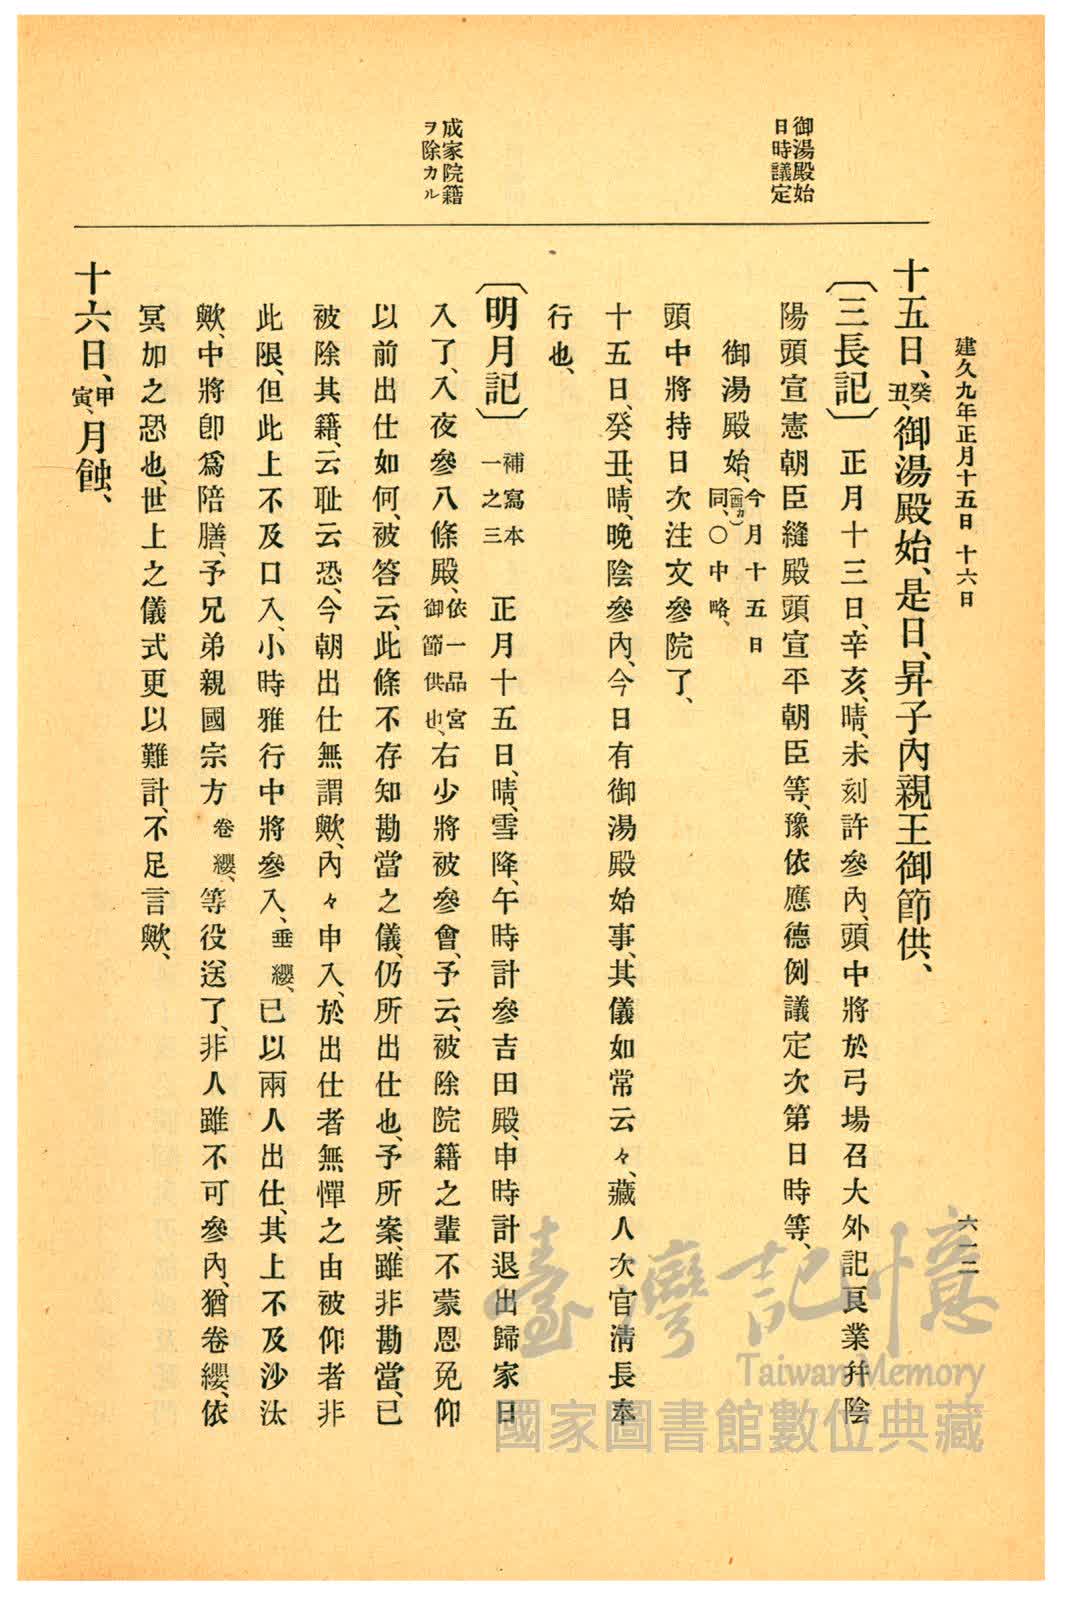 建久九年正月十五日 十六日
六一二
御湯殿始
日時議定
成家院籍
ヲ除カル
十五日、癸丑、御湯殿始、是日、昇子內親王御節供、
〔三長記〕正月十三日、辛亥、晴、未刻許參內、頭中將於弓場召大外記良業幷陰
陽頭宣憲朝臣縫殿頭宣平朝臣等、豫依應德例議定次第日時等、
御湯殿始、今月十五日同、(酉カ)〇中略、
頭中將持日次注文參院了、
十五日、癸丑、晴、晚陰參內、今日有御湯殿始事、其儀如常云々、藏人次官淸長奉
行也、
〔明月記〕補寫本一之三 正月十五日、晴、雪降、午時計參吉田殿、申時計退出歸家、日
入了、入夜參八條殿、依一品宮御節供也、右少將被參會、予云、被除院籍之輩不蒙恩免仰
以前出仕如何、被答云、此條不存知勘當之儀、仍所出仕也、予所案、雖非勘當、已
被除其籍、云耻云恐、今朝出仕無謂歟、內々申入、於出仕者無憚之由被仰者非
此限、但此上不及口入、小時雅行中將參入、垂纓、已以兩人出仕、其上不及沙汰
歟、中將卽爲陪膳、予兄弟親國宗方卷纓、等役送了、非人雖不可參內、猶卷纓、依
冥加之恐也、世上之儀式更以難計、不足言歟、
十六日、甲寅、月蝕、
臺灣記憶
Taiwan Memory
國家圖書館數位典藏